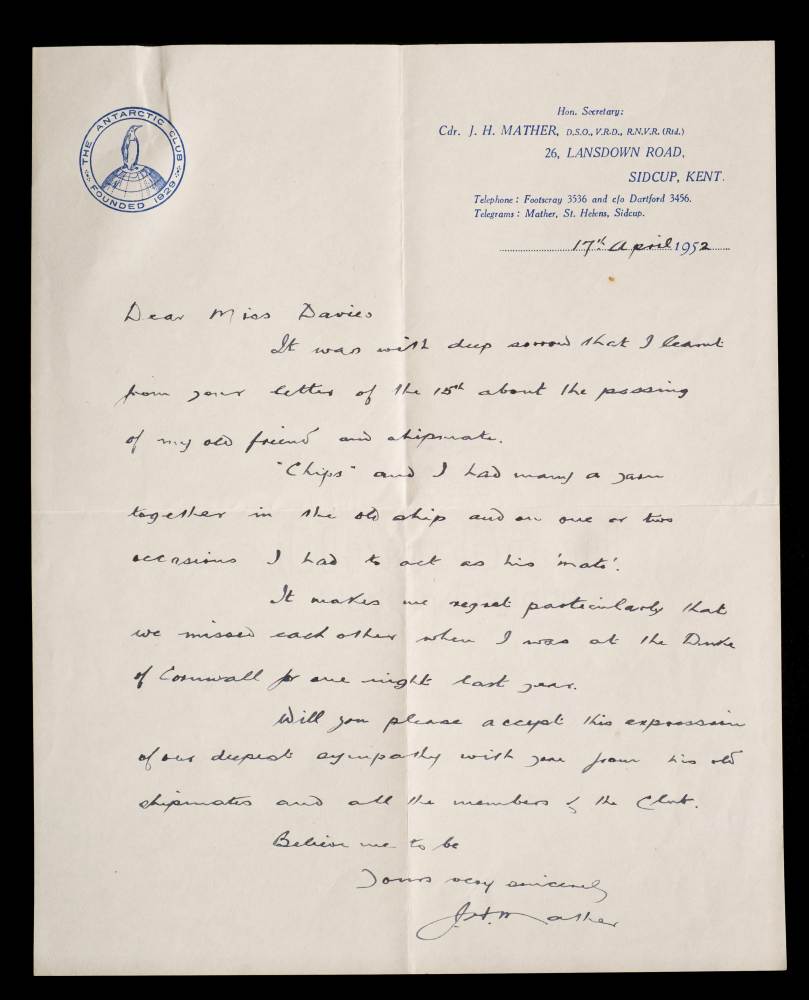 THE ANTARCTIC CLUB
FOUNDED 1929
Hon. Secretary:
Cdr. J. H. MATHER, D.S.O., V.R.D., R.N.V.R. (Rtd.)
26, LANSDOWN ROAD,
SIDCUP, KENT.
Telephone : Footscray 3536 and c/o Dartford 3456.
Telegrams : Mather, St. Helens, Sidcup.
17th April 1952
Dear Miss Davies
It was with deep sorrow that I learnt
from your letter of the 15th about the passing
of my old friend and shipmate.
"Chips" and I had many a yarn
together in the old ship and on one or two
occasions I had to act as his 'mate'.
It makes me regret particularly that
we missed each other when I was at the Duke
of Cornwall for one night last year.
Will you please accept this expression
of our deepest sympathy with you from his old
shipmates and all the members of the Club.
Believe me to be
Yours very sincerely
J.H. Mather